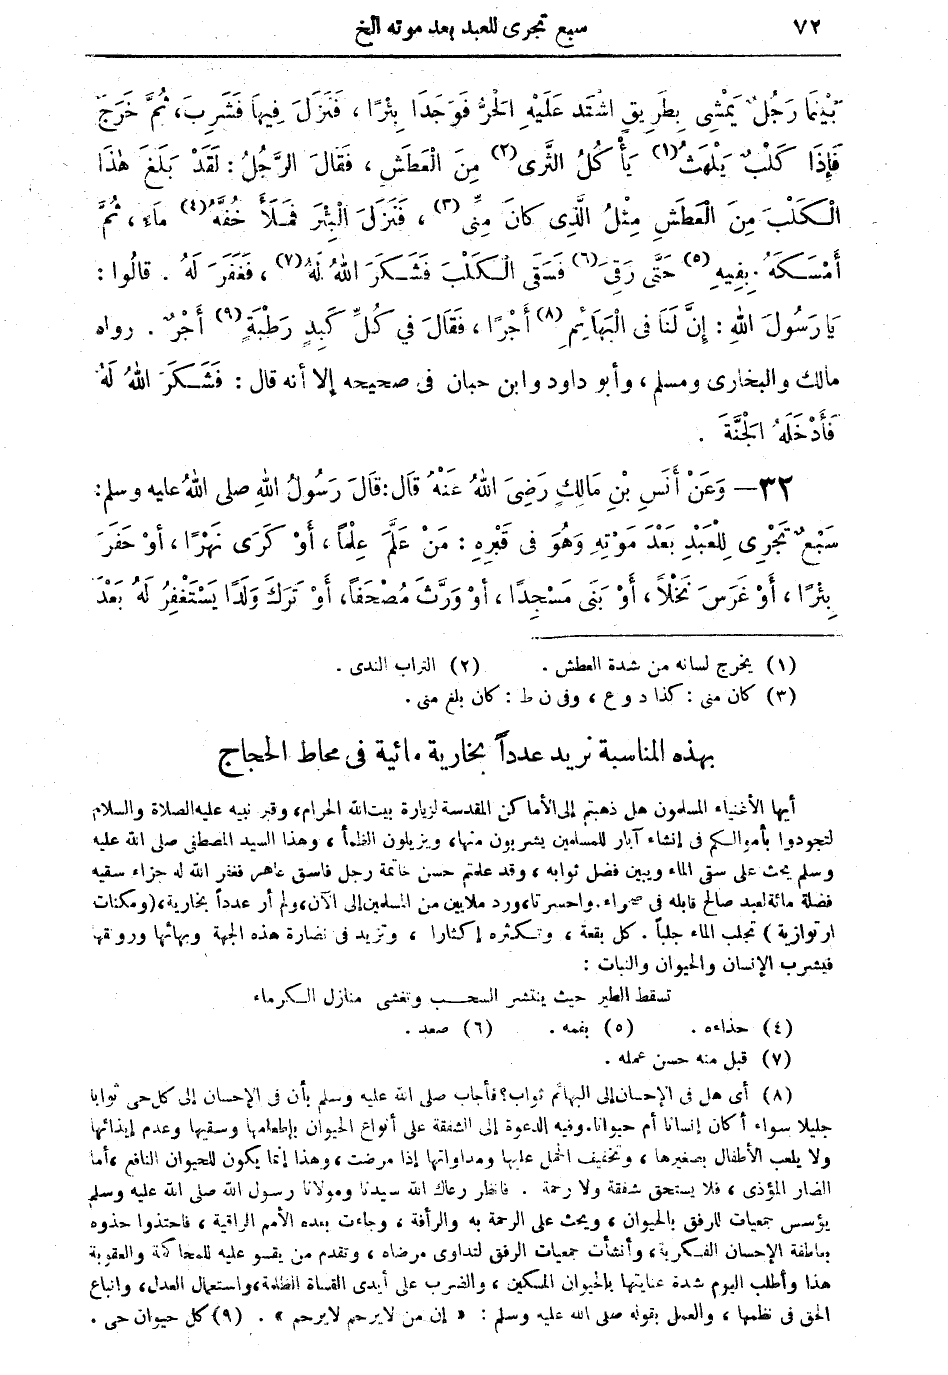 ٧٢ سبع تجرى للعبد بعد موته الخ
بَيْنَمَا رَجُلٌ يَمْشِى بِطَرِيقٍ اشْتَد عَلَيْهِ الْحَرُّ فَوَجَدَا بِئْرًا ، فَنَزَلَ فِيهَا فَشَرِبَ، ثُمَّ خَرَجَ
فَإِذَا كَلْبٌ يَلْهَثُ(١) يَأْكُلُ الثَّرَى(٢) مِنَ الْعَطَشِ ، فَقَالَ الرَّجُلُ : لَقَدْ بَلَغَ هٰذَا
الْكَلْبَ مِنَ الْعَطَشِ مِثْلُ الَّذِى كَانَ مِنِّى(٣) ، فَنَزَلَ الْبِئْرَ فَمَلَأَ خُفَّهُ(٤) مَاءً ، ثُمَّ
أَمْسَكَهُ بِفِيهِ(٥) حَتَّى رَقِىَ(٦) فَسَقَى الْكَلْبَ فَشَكَرَ اللهُ لَهُ(٧) ، فَغَفَرَ لَهُ . قالُوا :
يَا رَسُولَ اللهِ : إِنَّ لَنَا فى الْبَهَائِمِ(٨) أَجْرًا ، فَقَالَ فِي كُلِّ كَبِدٍ رَطْبَةٍ(٩) أَجْرٌ . رواه
مالك والبخارى ومسلم ، وأبو داود وابن حبان فى صحيحه إلا أنه قال : فَشَكَرَ اللهُ لَهُ
فَأَدْخَلَهُ الجَنَّةَ .
٣٢ — وَعَنْ أَنَسِ بْنِ مَالِكٍ رَضِىَ اللهُ عَنْهُ قَال : قَالَ رَسُولُ اللهِ صلى اللهُ عليه وسلم :
سَبْعٌ تَجْرِى لِلْعَبْدِ بَعْدَ مَوْتِهِ وَهُوَ فى قَبْرِهِ : مَنْ عَلَّمَ عِلْماً ، أَوْ كَرَى نَهْرًا ، أوْ حَفَرَ
بِئْرًا ، أَوْ غَرَسَ نَخْلاً ، أَوْ بَنَى مَسْجِدًا ، أوْ وَرَّثَ مُصْحَفاً، أَوْ تَرَكَ وَلَدًا يَسْتَغْفِرُ لَهُ بَعْدَ
(١) يخرج لسانه من شدة العطش . (٢) التراب الندى .
(٣) كان منى : كذا د و ع ، وفى ن ط : كان بلغ منى .
بهذه المناسبة نريد عدداً بخارية مائية فى محاط الحجاج
أيها الأغنياء المسلمون هل ذهبتم إلى الأماكن المقدسة لزيارة بيت الله الحرام، وقبر نبيه عليه الصلاة والسلام
لتجودوا بأموالكم فى إنشاء آبار للمسلمين يشربون منها، ويزيلون الظمأ ، وهذا السيد المصطفى صلى الله عليه
وسلم يحث على سقى الماء ويبين فضل ثوابه ، وقد علمتم حسن خاتمة رجل فاسق عاهر فغفر الله له جزاء سقيه
فضلة مائة لعبد صالح قابله فى صحراء. واحسرتا، ورد ملايين من المسلمين إلى الآن، ولم أر عدداً بخارية، (ومكنات
ارتوازية ) تجلب الماء جلباً . كل بقعة ، وتكثره إكثارا ، وتزيد فى نضارة هذه الجهة وبهائها ورونقها
فيشرب الإنسان والحيوان والنبات :
تسقط الطير حيث ينتشر السحب وتغشى منازل الكرماء
(٤) حذاءه . (٥) بفمه . (٦) صعد .
(٧) قبل منه حسن عمله .
(٨) أى هل فى الإحسان إلى البهائم ثواب؟ فأجاب صلى الله عليه وسلم بأن فى الإحسان إلى كل حى ثوابا
جليلا سواء أكان إنسانا أم حيوانا. وفيه الدعوة إلى الشفقة على أنواع الحيوان بإطعامها وسقيها وعدم إيذائها
ولا يلعب الأطفال بصغيرها ، وتخفيف الحمل عليها ومداواتها إذا مرضت ، وهذا إنما يكون للحيوان النافع ، أما
الضار المؤذى ، فلا يستحق شفقة ولا رحمة . فانظر رعاك الله سيدنا ومولانا رسول الله صلى الله عليه وسلم
يؤسس جمعيات للرفق بالحيوان ، ويحث على الرحمة به والرأفة ، وجاءت بعده الأمم الراقية ، فاحتذوا حذوه
بعاطفة الإحسان الفكرية، وأنشأت جمعيات الرفق لتداوى مرضاه ، وتقدم من يقسو عليه للمحاكمة والعقوبة
هذا وأطلب اليوم شدة عنايتها بالحيوان المسكين ، والضرب على أيدى القساة الظلمة، واستعمال العدل، واتباع
الحق فى نظمها ، والعمل بقوله صلى الله عليه وسلم : « إن من لايرحم لايرحم » . (٩) كل حيوان حى .